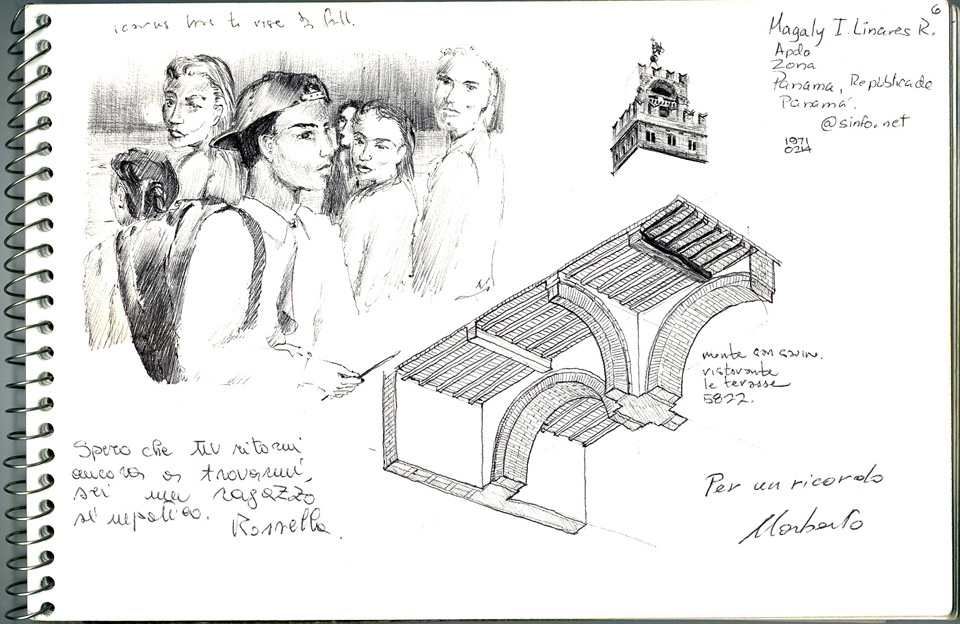 icarus has to rise to fall.
6
Magaly I. Linares R.
Apdo
Zona
Panama, República de
Panamá.
@sinfo.net
1971
0214
ristorante
le terasse
5822.
Spero che tu ritorni
ancora a trovarmi,
sei un ragazzo
simpatico.
Rossella.
Per un ricordo
Norberto